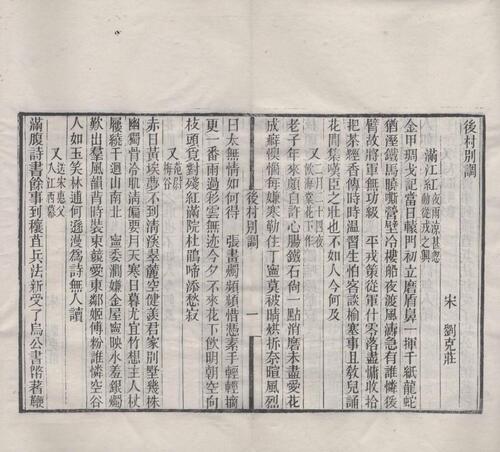 後村別調
宋 劉克莊
滿江紅 夜雨涼甚忽動從戎之興
金甲琱戈記當日轅門初立磨盾鼻一揮千紙龍蛇
猶溼鐵馬曉嘶營壁冷樓船夜渡風濤急有誰憐猿
臂故將軍無功級 平戎策從軍什零落盡慵收拾
把茶經香傳時時溫習生怕客談榆塞事且敎兒誦
花間集嘆臣之壯也不如人今何及
又 二月二十四夜飲海棠花下作
老子年來頗自許心腸鐵石尙一點消磨未盡愛花
成癖懊惱每嫌寒勒住丁寧莫被晴烘拆奈暄風烈
後村別調 一
日太無情如何得 張畫燭頻頻惜凭素手輕輕摘
更一番雨過彩雲無迹今夕不來花下飮明朝空向
枝頭覓對殘紅滿院杜鵑啼添愁寂
又 范尉梅谷
赤日黃埃夢不到淸溪翠麓空健羨君家別墅幾株
幽獨骨冷肌淸偏要月天寒日暮尤宜竹想主人杖
屨繞千迴山南北 寧委澗嫌金屋寧映水羞銀燭
歎出羣風韻背時裝束競愛東鄰姬傅粉誰憐空谷
人如玉笑林逋何遜漫爲詩無人讀
又 送宋惠父入江西幕
滿腹詩書餘事到穰苴兵法新受了烏公書幣著鞭